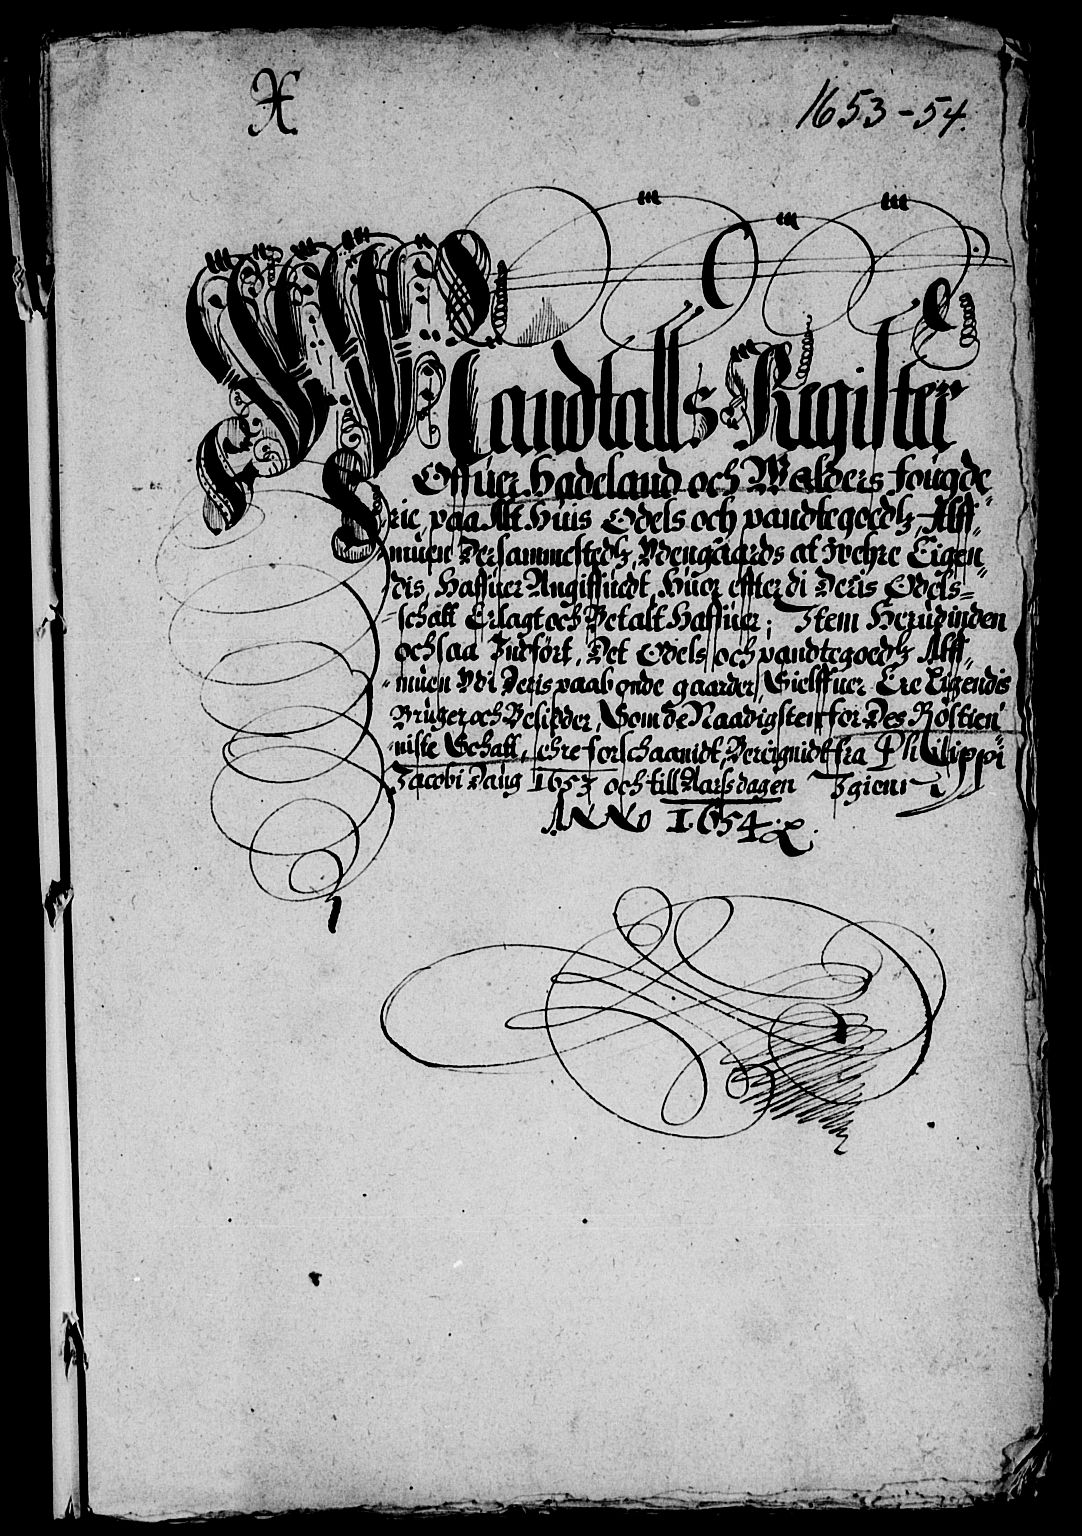 1653-54.
Mandtalls Register
Offuer Hadeland och Walders fougde-
rie, paa Alt Huis Odels och pandtegoedtz Alf-
muen Dersammestedtz, Udengaards at Wehre Eigen-
dis, Haffuer Angiffuedt, Huor effter di Deris Odels-
schatt Erlagt och Betalt Haffuer; Item Herudinden
ochsaa Indfört, Det Odels och pandtegoedtz Alff-
muen Udi Deris paaboende gaarder, Sielffuer Ere Eigendis
Bruger och Besidder, Som de Naadigsten for Des Rostien
niste Schatt, ehre forschaanidt, Bereignidt fra Philippi
Jacobi Daug 1653 och till Aarsdagen Igienn
Anno 1654